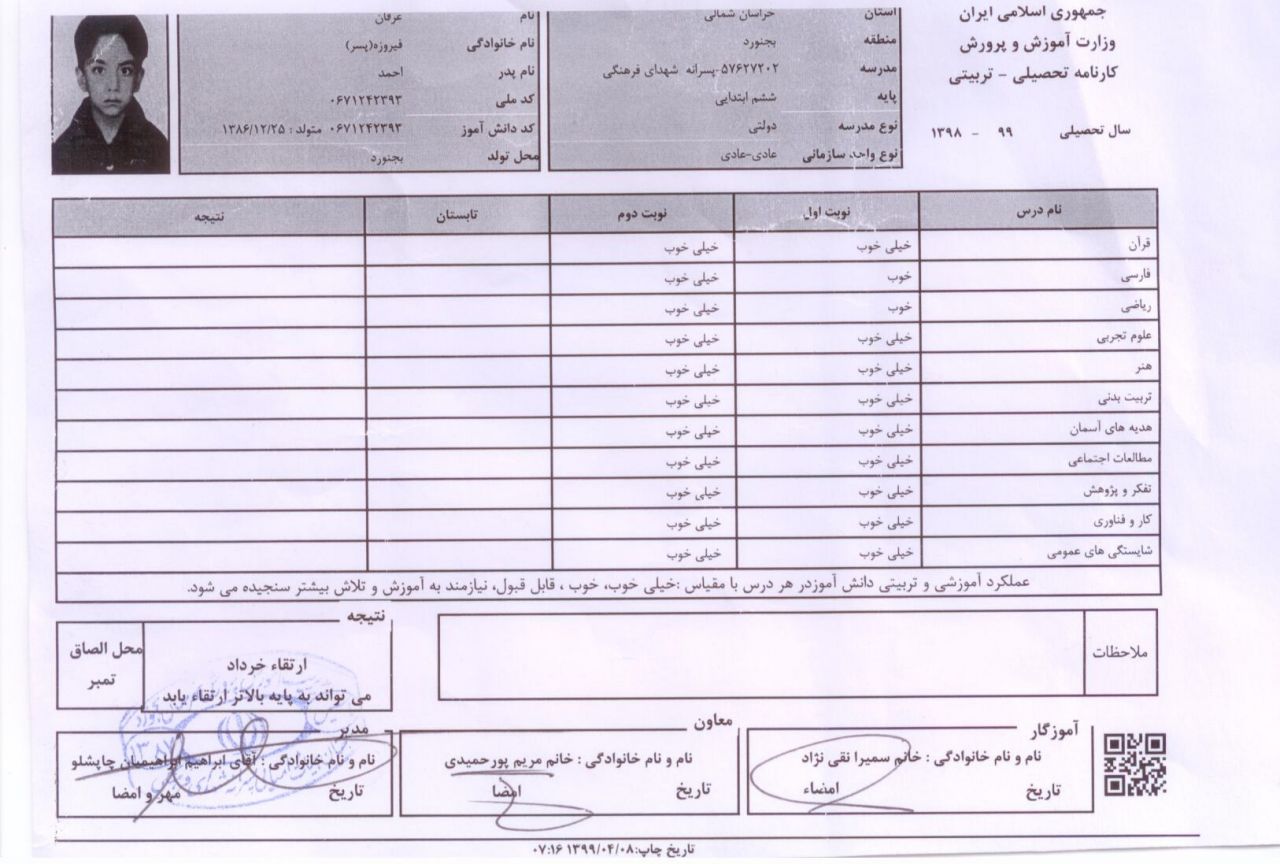 جمهوری اسلامی ایران
وزارت آموزش و پرورش
کارنامه تحصیلی - تربیتی
سال تحصیلی ۹۹ - ۱۳۹۸
استان خراسان شمالی
منطقه بجنورد
مدرسه ۵۷۶۲۷۲۰۲-پسرانه شهدای فرهنگی
پایه ششم ابتدایی
نوع مدرسه دولتی
نوع واحد سازمانی عادی-عادی
نام عرفان
نام خانوادگی فیروزه(پسر)
نام پدر احمد
کد ملی ۰۶۷۱۲۴۲۳۹۳
کد دانش آموز ۰۶۷۱۲۴۲۳۹۳ متولد : ۱۳۸۶/۱۲/۲۵
محل تولد بجنورد
نام درس نوبت اول نوبت دوم تابستان نتیجه
قرآن خیلی خوب خیلی خوب
فارسی خوب خیلی خوب
ریاضی خوب خیلی خوب
علوم تجربی خیلی خوب خیلی خوب
هنر خیلی خوب خیلی خوب
تربیت بدنی خیلی خوب خیلی خوب
هدیه های آسمان خیلی خوب خیلی خوب
مطالعات اجتماعی خیلی خوب خیلی خوب
تفکر و پژوهش خیلی خوب خیلی خوب
کار و فناوری خیلی خوب خیلی خوب
شایستگی های عمومی خیلی خوب خیلی خوب
عملکرد آموزشی و تربیتی دانش آموزدر هر درس با مقیاس :خیلی خوب، خوب ، قابل قبول، نیازمند به آموزش و تلاش بیشتر سنجیده می شود.
ملاحظات
نتیجه
ارتقاء خرداد
می تواند به پایه بالاتر ارتقاء یابد
محل الصاق
تمبر
آموزگار
نام و نام خانوادگی : خانم سمیرا نقی نژاد
تاریخ امضاء
معاون
نام و نام خانوادگی : خانم مریم پورحمیدی
تاریخ امضا
مدیر
نام و نام خانوادگی : آقای ابراهیم ابراهیمیان چاپشلو
تاریخ مهر و امضا
تاریخ چاپ:۱۳۹۹/۰۴/۰۸ ۰۷:۱۶